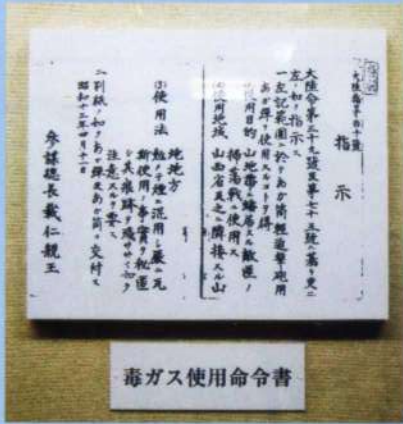 大陸指第百十號
指示
大陸命第三十九號及第七十五號ニ基キ更ニ
左ノ如ク指示ス
一左記範圍ニ於テあか筒輕迫撃砲用
あか彈ヲ使用スルコトヲ得
使用目的 山地帶ニ蟠居スル敵匪ノ
掃蕩戰ニ使用ス
使用地域 山西省及之ニ隣接スル山
地地方
(3)使用法 勉メテ煙ニ混用シ嚴ニ瓦
斯使用ノ事實ヲ秘匿
シ其痕跡ヲ殘サゞル如ク
注意スルヲ要ス
二別紙ノ如クあか彈及あか筒ヲ交付ス
昭和十三年四月十一日
參謀總長載仁親王
毒ガス使用命令書